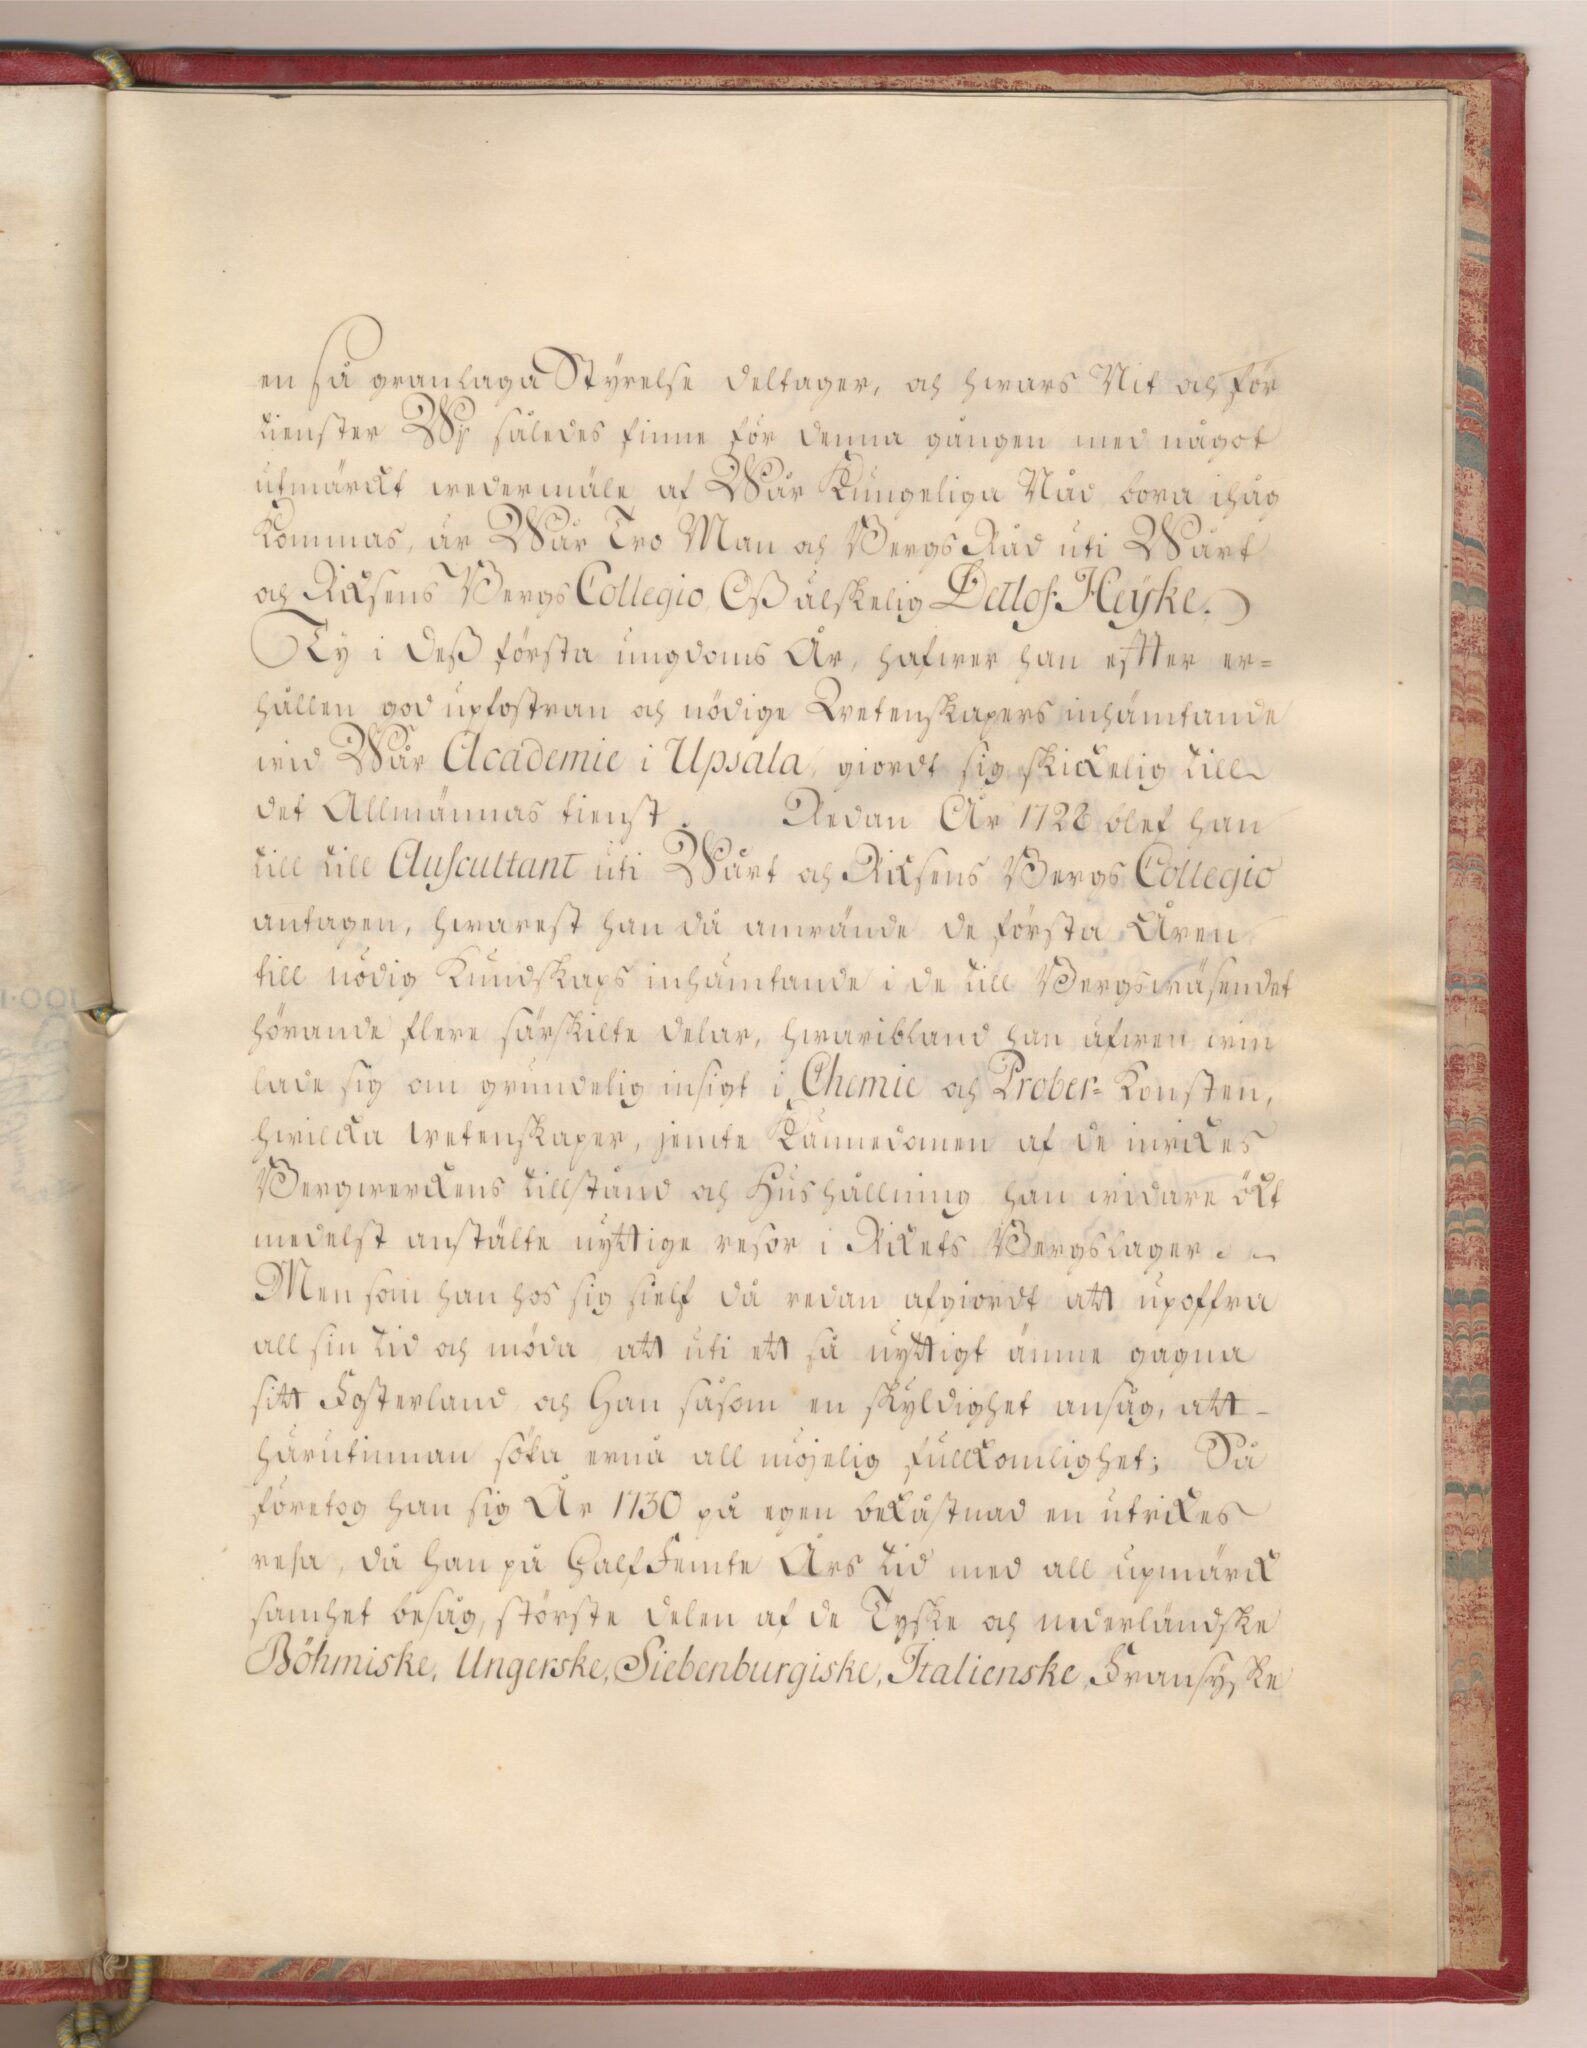 en så granlaga Styrelse deltager, och hwars Nit och för
tienster Wij således finne för denna gången med något
utmärckt wedermäle af Wår Kungeliga Nåd, bora ihåg
Kommas, är Wår Tro Man och Bergs Råd uti Wårt
och Riksens Bergs Collegio, Oß älskelig Detlof Heÿke.
Ty i deß första ungdoms År, hafwer han efter er=
hållen god upfostran och nödige Wetenskapers inhämtande
wid Wår Academie i Upsala, giordt sig skickelig till
det Allmännas tienst. Redan År 1728 blef han
till till Auscultant uti Wårt och Riksens Bergs Collegio
antagen, hwarest han då anwände de första Åren
till nödig Kundskaps inhämtande i de till Bergswäsendet
hörande flere särskilte delar, hwaribland han äfwen win
lade sig om grundelig insigt i Chemie och Prober= Konsten,
hwilcka wetenskaper, jemte Kännedomen af de inrikes
Bergwerckens tillstånd och Hushållning han widare ökt
medelst anstälte nyttige resor i Rikets Bergslager.
Men som han hos sig sielf då redan afgiordt att upoffra
all sin tid och möda, att uti ett så nyttigt ämne gagna
sitt Fosterland, och Han såsom en skyldighet ansåg, att
härutinnan söka ernå all möjelig fullkomlighet; Så
företog han sig År 1730 på egen bekåstnad en utrikes
resa, då han på Half Femte Års tid med all upmärck
samhet besåg, större delen af de Tyske och nederländske
Böhmiske, Ungerske, Siebenburgiske, Italienske, Fransÿske